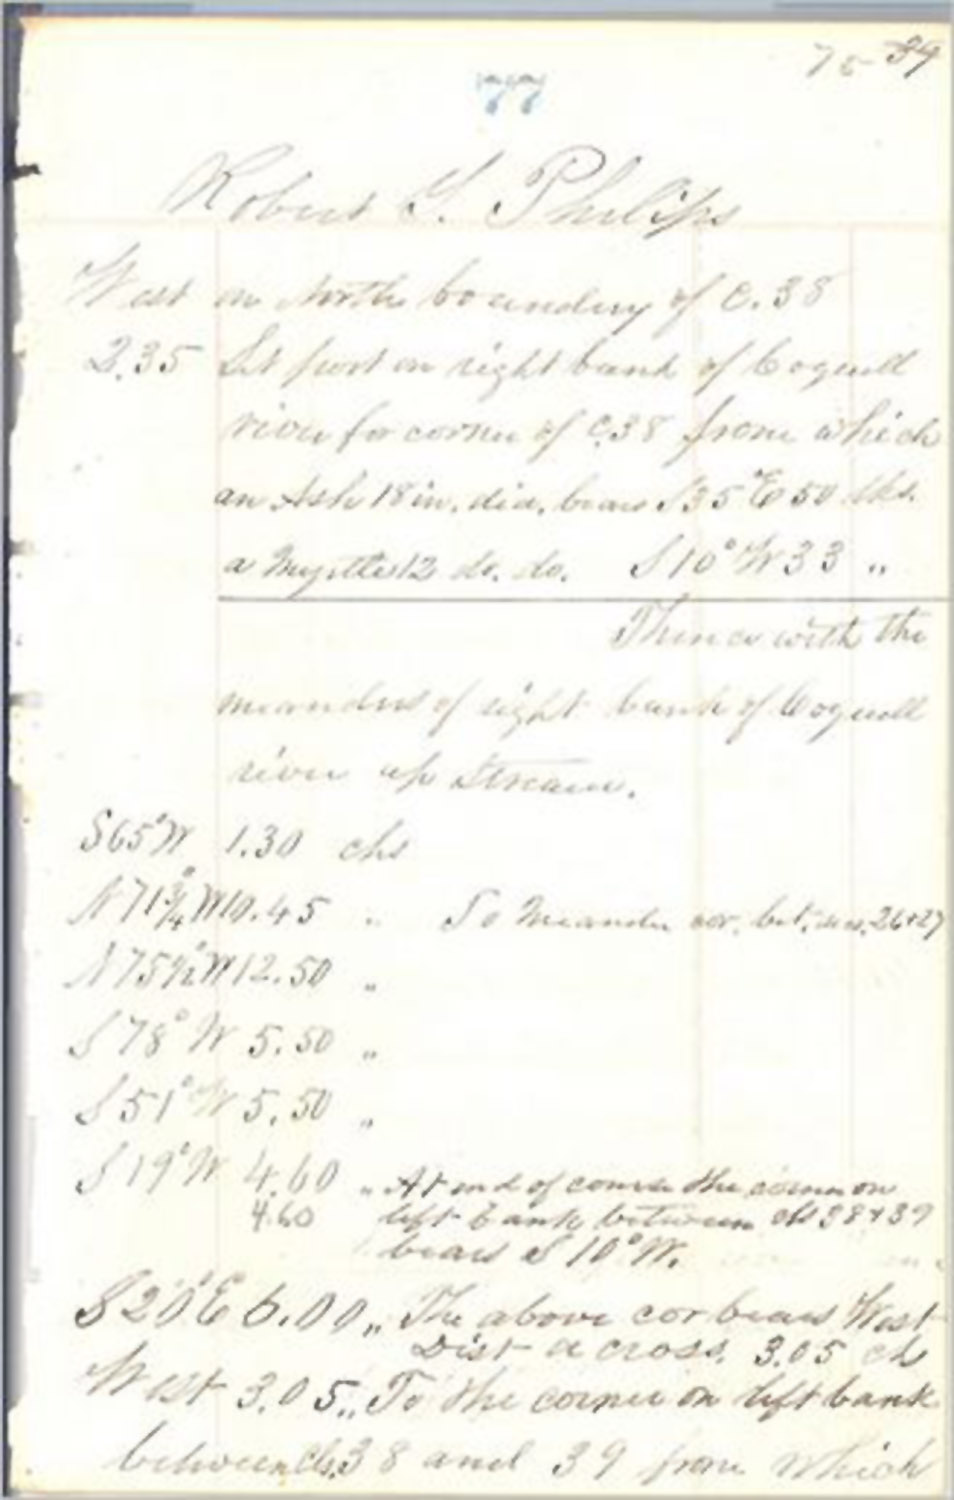 75 34
77
Robert Y. Philips
West on North boundery of C. 38
2.35 Set post on right bank of Coquill
river for corner of C.38 from which
an Ash 18 in. dia. bears S35°E 50 lks.
a Myrtle 12 do. do. S10°W 33 "
Thence with the
meanders of right bank of Coquill
river up stream.
S65°W 1.30 chs
N71¾°W 10.45 " To Meander cor. bet. secs. 26+27
N75½°W 12.50 "
S78°W 5.50 "
S51°W 5.50 "
S19°W 4.60 " At end of course the corner on
4.60 left bank between cls 38+39
bears S 10°W.
S20°E 6.00 " The above cor bears West
Dist across. 3.05 ch
West 3.05 " To the corner on left bank
between cls. 38 and 39 from which